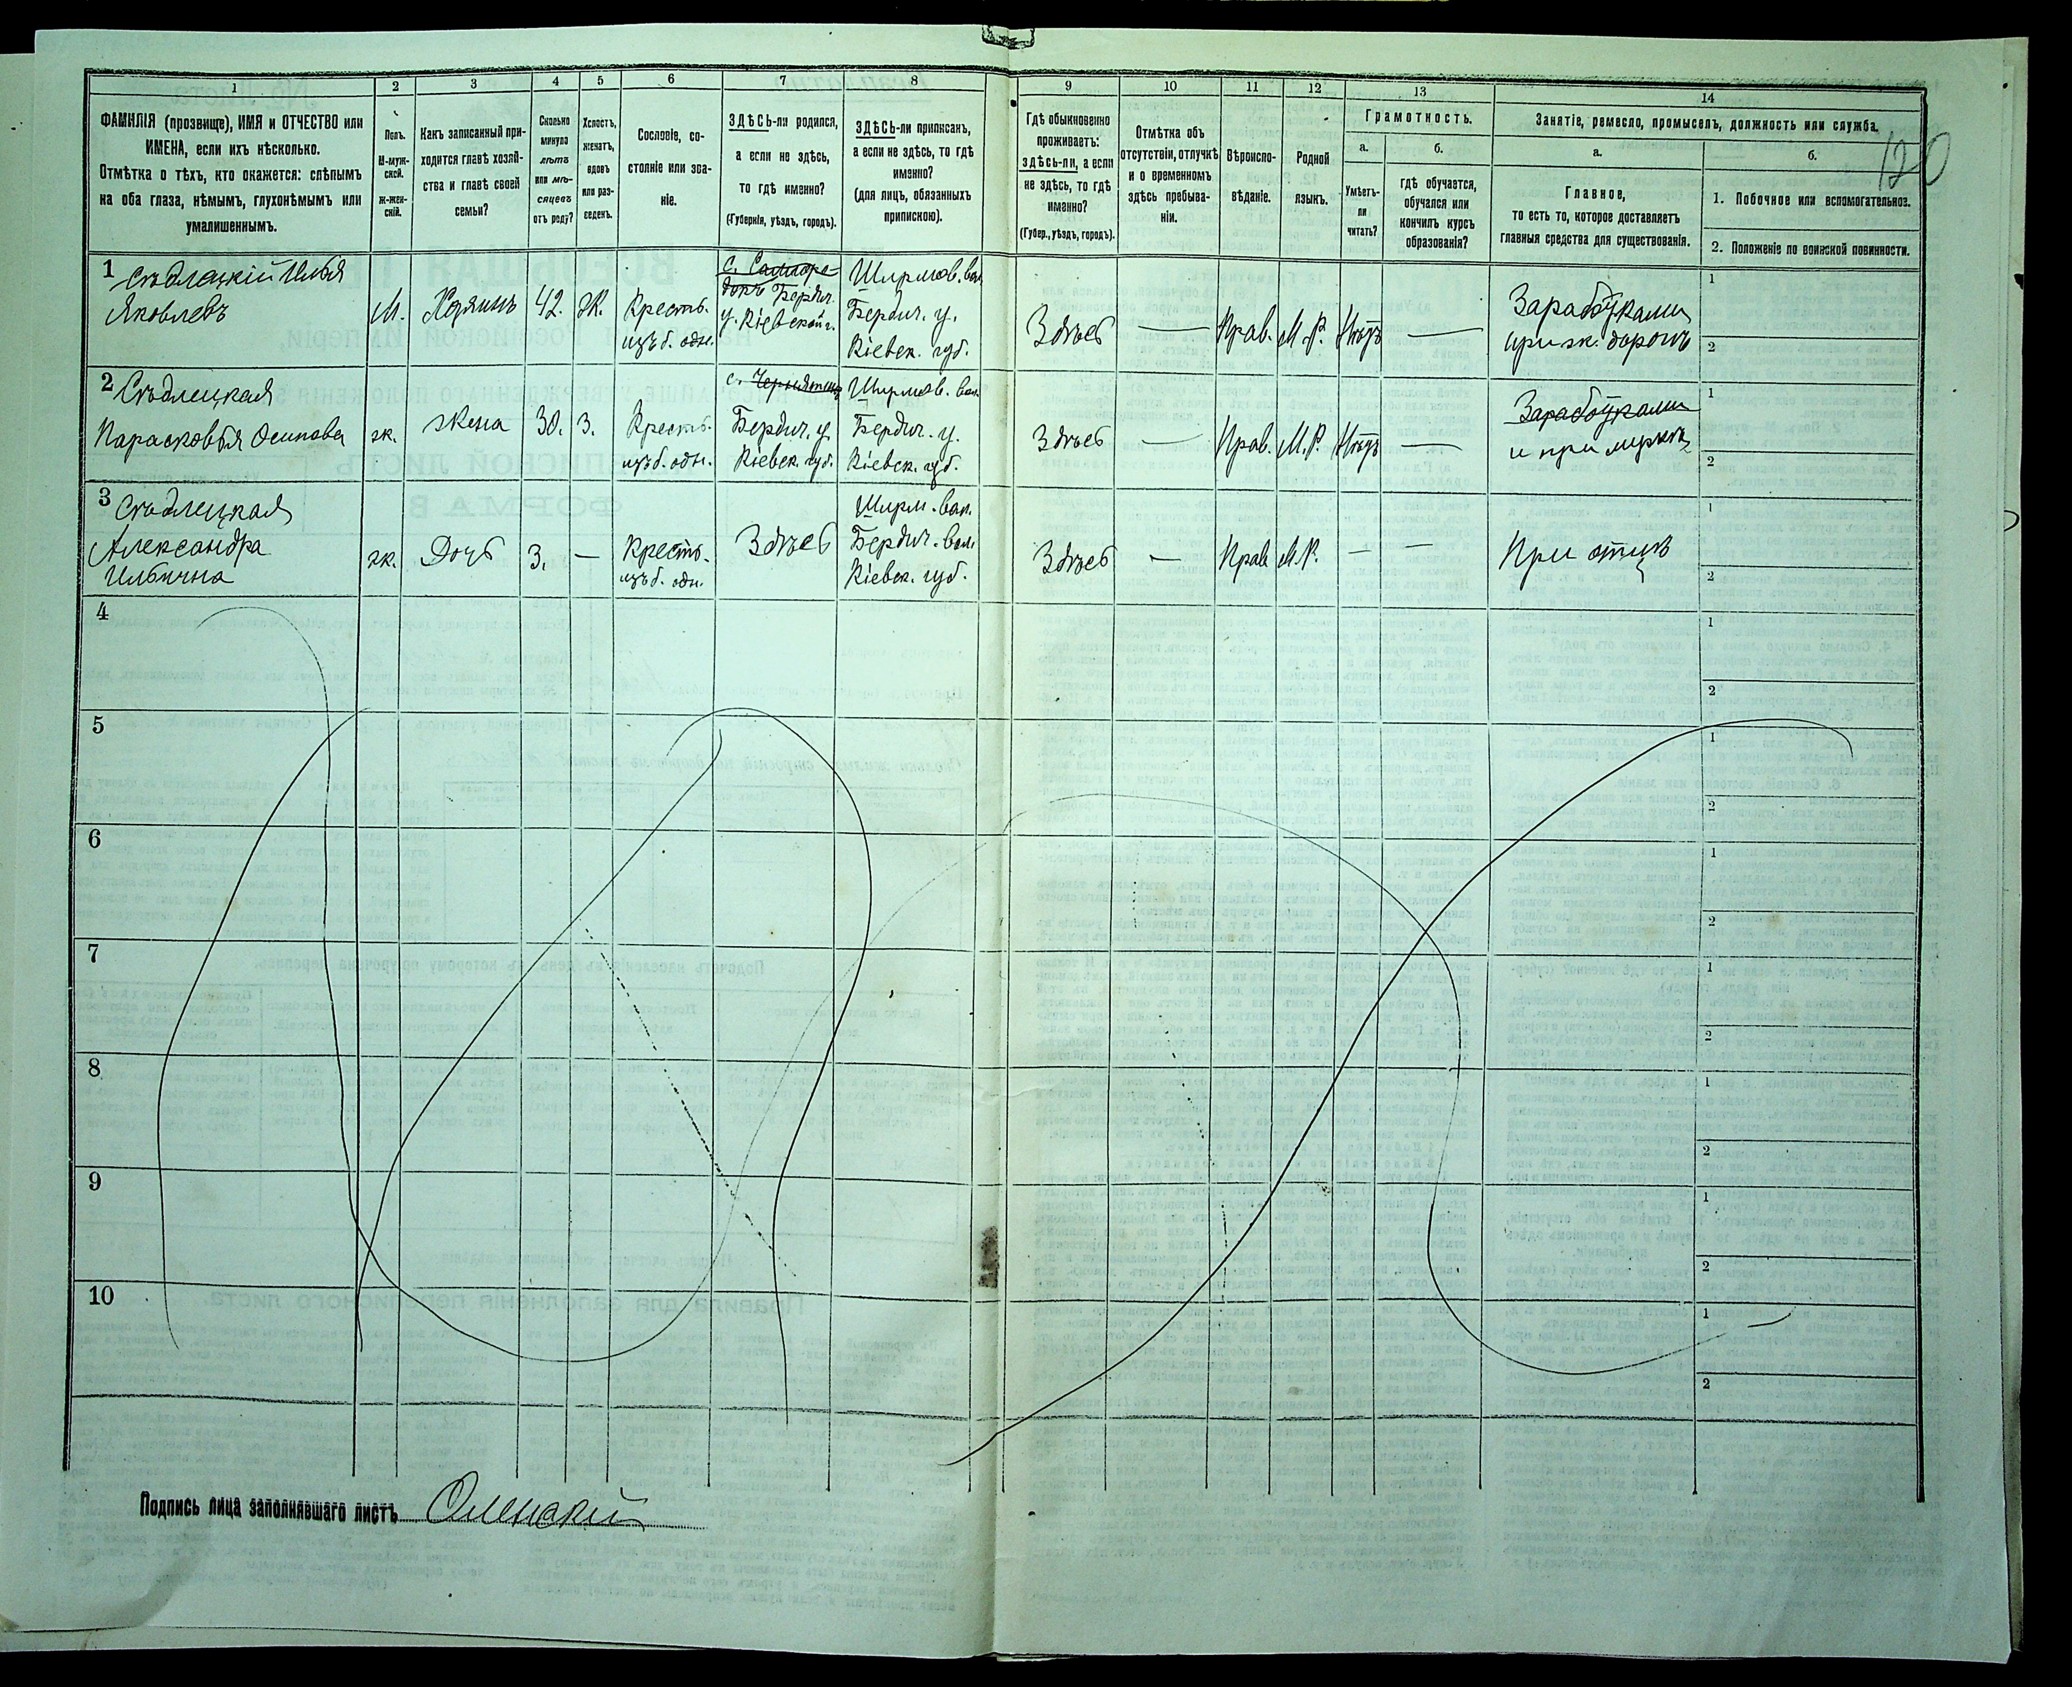 1 2 3 4 5 6 7 8 9 10 11 12 13 14
ФАМИЛІЯ (прозвище), ИМЯ и ОТЧЕСТВО или
ИМЕНА, если ихъ нѣсколько.
Отмѣтка о тѣхъ, кто окажется: слѣпымъ
на оба глаза, нѣмымъ, глухонѣмымъ или
умалишеннымъ.
Полъ.
М-муж-
ской.
ж-жен-
скій.
Какъ записанный при-
ходится главѣ хозяй-
ства и главѣ своей
семьи?
Сколько
минуло
лѣтъ
или мѣ-
сяцевъ
отъ роду?
Холостъ,
женатъ,
вдовъ
или раз-
веденъ.
Сословіе, со-
стояніе или зва-
ніе.
ЗДѢСЬ-ли родился,
а если не здѣсь,
то гдѣ именно?
(Губернія, уѣздъ, городъ).
ЗДѢСЬ-ли приписанъ,
а если не здѣсь, то гдѣ
именно?
(для лицъ, обязанныхъ
припискою).
Гдѣ обыкновенно
проживаетъ:
здѣсь-ли, а если
не здѣсь, то гдѣ
именно?
(Губер., уѣздъ, городъ).
Отмѣтка объ
отсутствіи, отлучкѣ
и о временномъ
здѣсь пребыва-
ніи.
Вѣроиспо-
вѣданіе.
Родной
языкъ.
Грамотность.
а.
Умѣетъ-
ли
читать?
б.
гдѣ обучается,
обучался или
кончилъ курсъ
образованія?
Занятіе, ремесло, промыселъ, должность или служба.
а.
Главное,
то есть то, которое доставляетъ
главныя средства для существованія.
б.
1. Побочное или вспомогательное.
2. Положеніе по воинской повинности.
120
1 Сѣдлецкій Илья
Яковлевъ
М.
Хозяинъ
42.
Ж.
Кресть.
изъ б. одн.
Бердич.
у. Кіевской г.
Ширмов. вол.
Бердич. у.
Кіевск. губ.
Здѣсь
—
Прав.
М.Р.
Нѣтъ
—
Заработками
при ж. дорогѣ
1
2
2 Сѣдлецкая
Парасковья Осипова
ж.
Жена
30.
З.
Кресть.
изъ б. одн.
с.
Бердич. у.
Кіевск. губ.
Ширмов. вол.
Бердич. у.
Кіевск. губ.
Здѣсь
—
Прав.
М.Р.
Нѣтъ
—
Заработками
и при мужѣ
1
2
3 Сѣдлецкая
Александра
Ильична
ж.
Дочь
3.
—
Кресть.
изъ б. одн.
Здѣсь
Ширм. вол.
Бердич. вол.
Кіевск. губ.
Здѣсь
—
Прав.
М.Р.
—
—
При отцѣ
1
2
4
1
2
5
1
2
6
1
2
7
1
2
8
1
2
9
1
2
10
1
2
Подпись лица заполнявшаго листъ